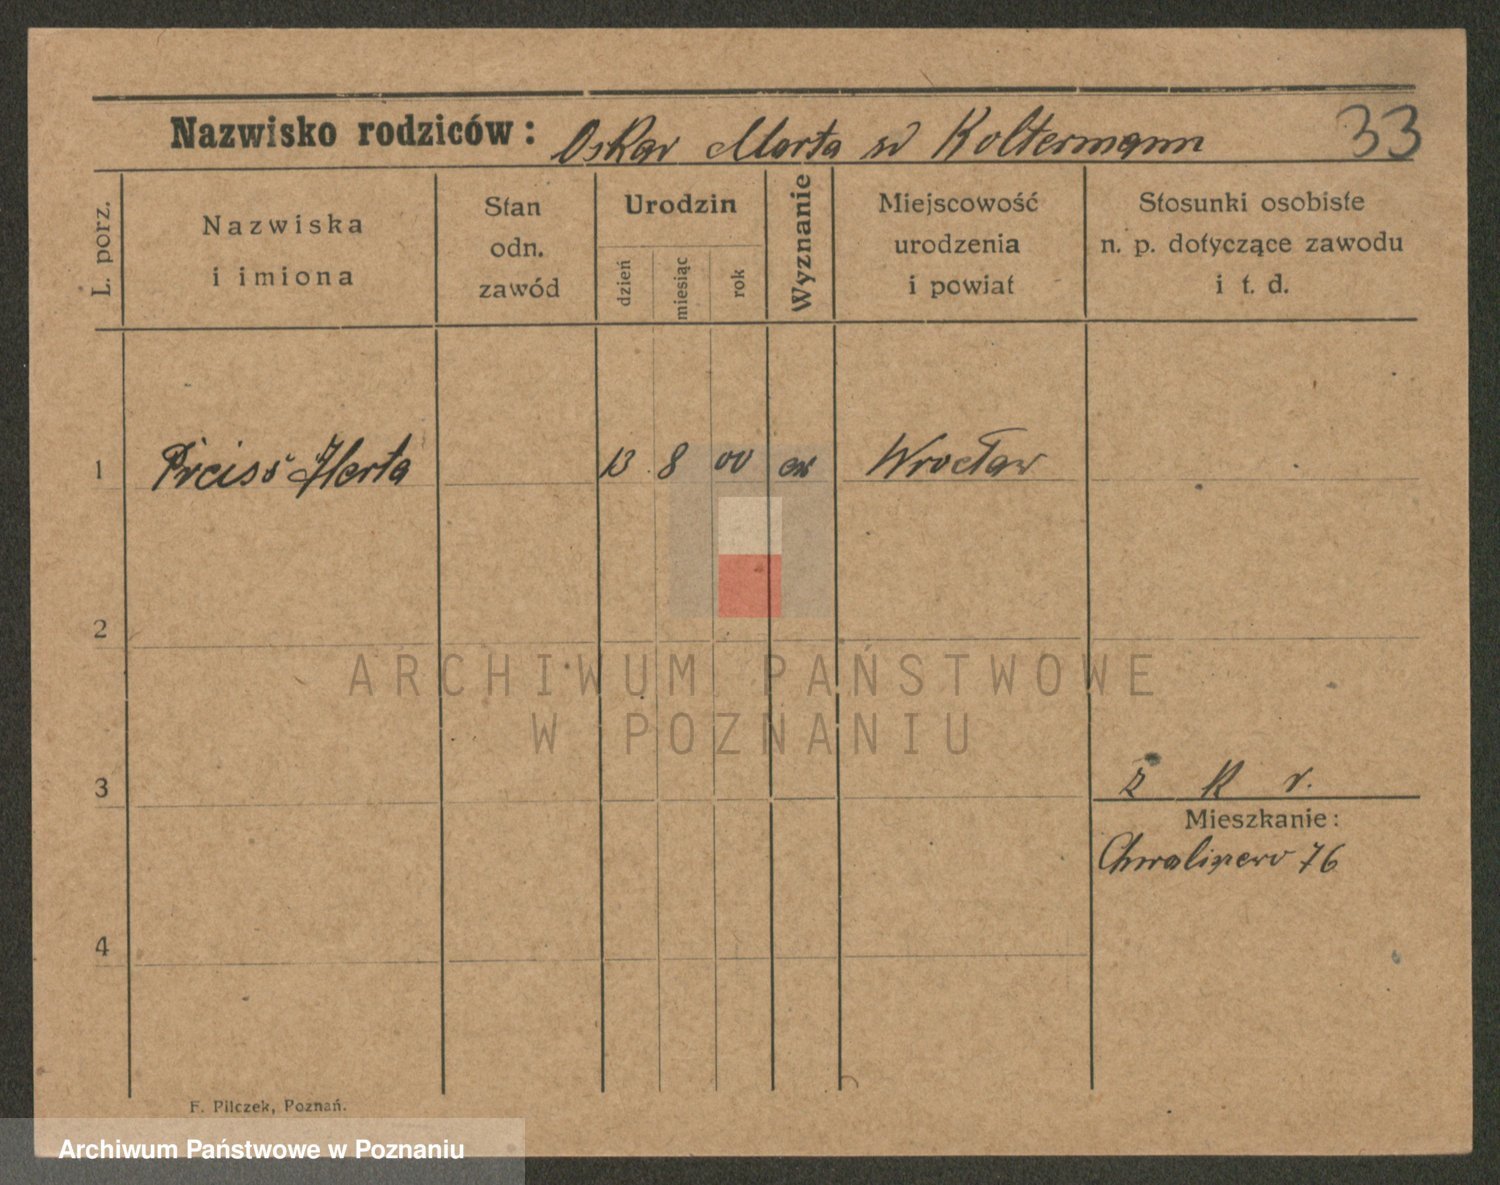 Nazwisko rodziców: Oskar Marta w Koltermann 33
L. porz.
Nazwiska i imiona
Stan odn. zawód
Urodzin
dzień
miesiąc
rok
Wyznanie
Miejscowość urodzenia i powiat
Stosunki osobiste n. p. dotyczące zawodu i t. d.
1 Preiss Herta 13 8 00 ew Wrocław
2
ARCHIWUM PAŃSTWOWE
W POZNANIU
3
Mieszkanie:
76
4
F. Pilczek, Poznań.
Archiwum Państwowe w Poznaniu